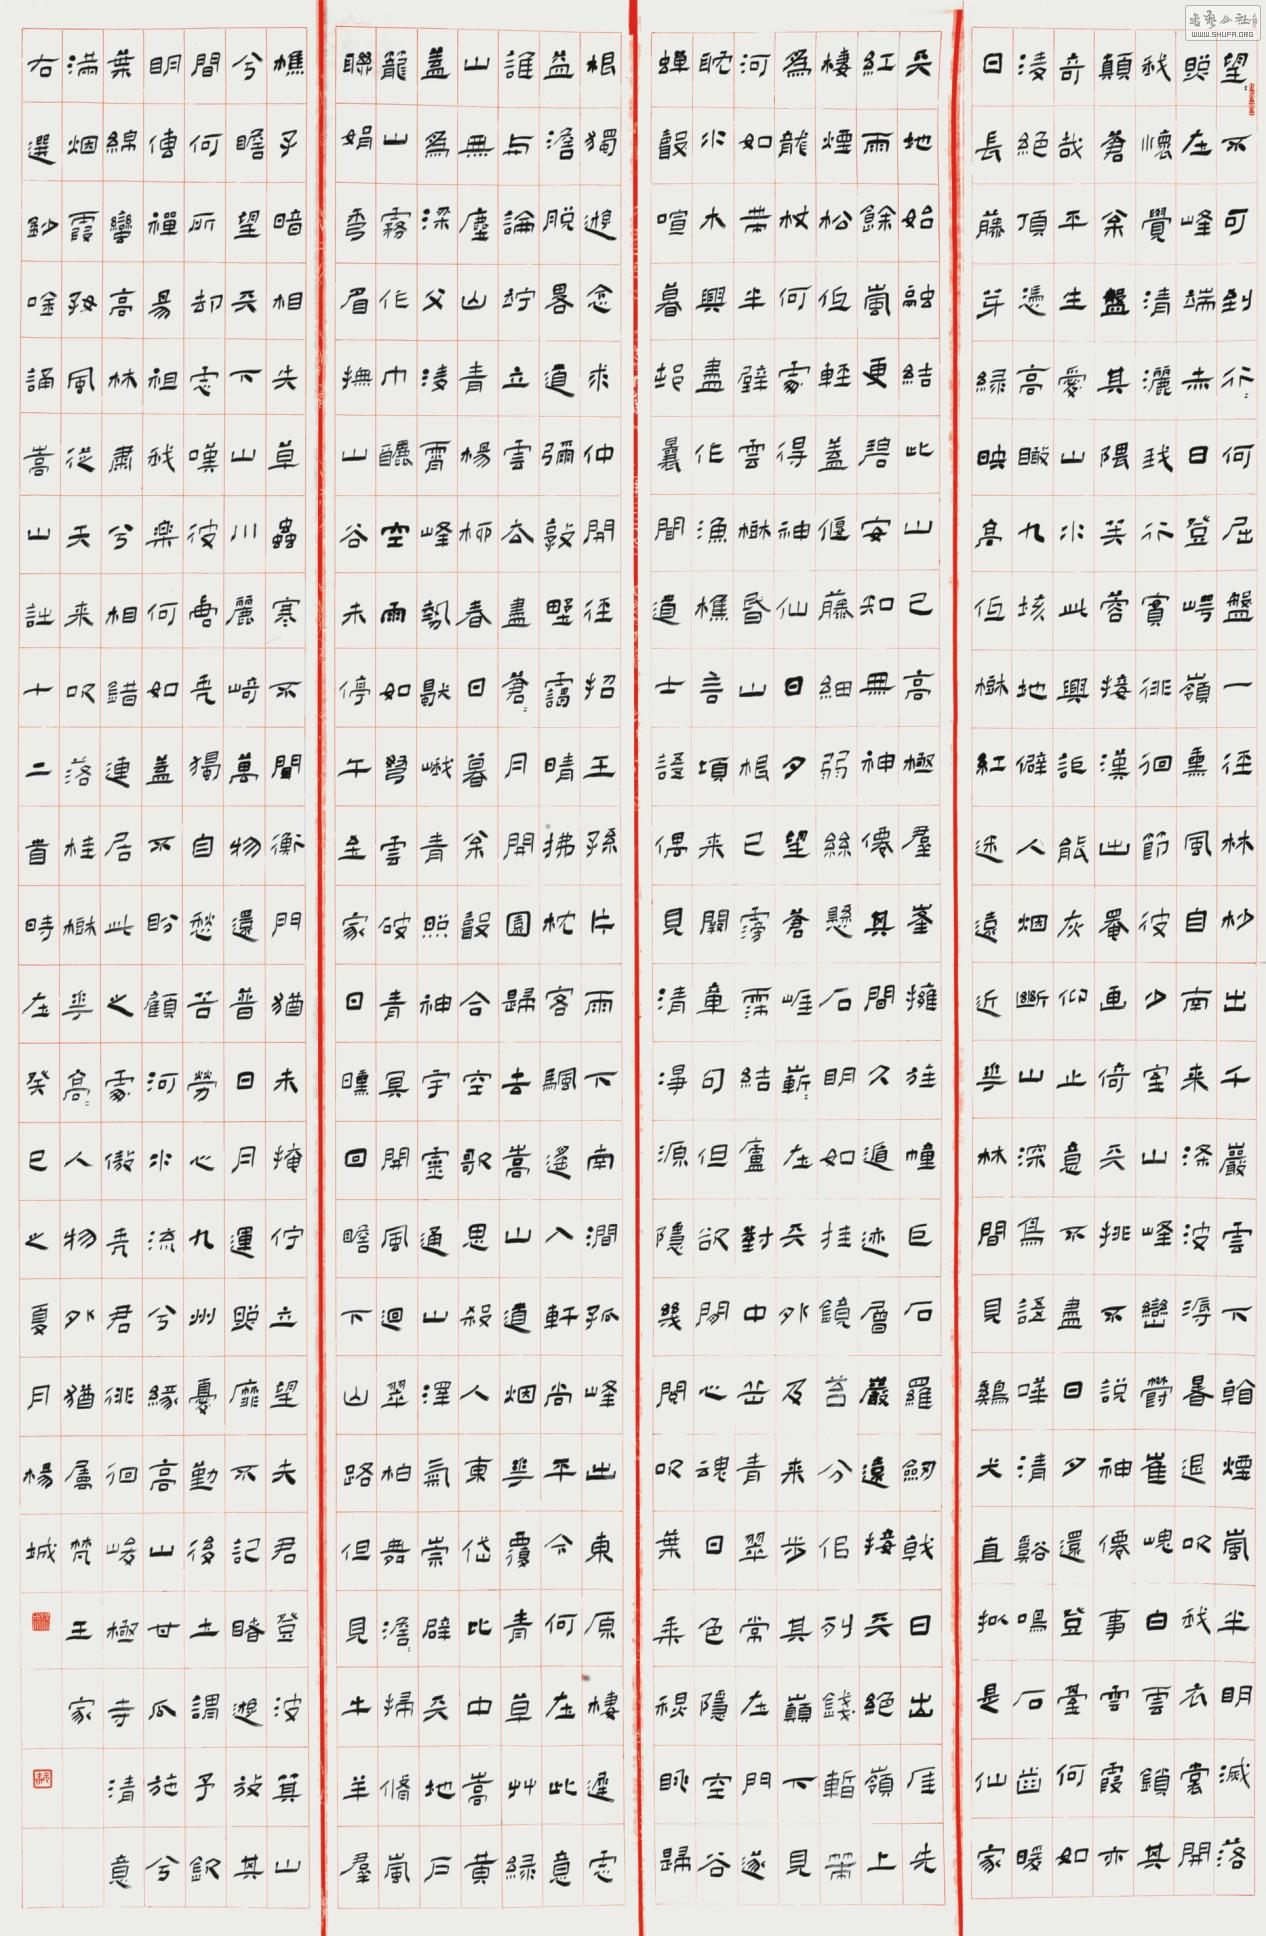 望〻不可到行〻何屈盤一徑林杪出千巖雲下煙嵐半明滅落
照在峰端赤日登崿嶺熏風自南来滌波溽暑退吹我衣裳開
我懷覺清灑我行賓徘徊節彼少室山峰巒欝崔嵬白雲鎖其
顛蒼余盤其隈芙蓉接漢出罨画倚天挑不說神僊事雲霞亦
奇哉平生愛山水此興詎能灰仰止意不盡日夕還登臺何如
淩絕頂憑高瞰九垓地僻人烟斷山深鳥語嘩清谿鳴石齒暖
日長藤芽緑映高低樹紅迷遠近華林間見鷄犬直擬是仙家
天地始融結此山已高極羣峯擁旌幢巨石羅劒戟日出厓先
紅雨餘嵐更碧安知無神僊其間久遁迹層巖遠接天絕嶺上
棲煙松低輕蓋偃藤細弱絲懸石明如挂鏡苔分佀列錢暫策
為龍杖何處得神仙日夕望蒼崖嶄〻在天外及来步其巔下見
河如帶半壁雲樹昏山根已雱霈結廬對中岳青翠常在門遂
耽水木興盡作漁樵言頃来闕章句但欲閒心魂日色隱空谷
蟬聲喧暮邨曩聞道士語偶見清淨源隱几閱吹葉乘秋眺歸
根獨遊念求仲開徑招王孫片雨下南澗孤峰出東原棲遲慮
益澹脫畧道彌敦野靄晴拂枕客颿遙入軒尚平今何在此意
誰与論竚立雲去盡蒼〻月開園歸去嵩山道烟華覆青草艸緑
山無塵山青楊柳春日暮余聲合空歌思殺人東岱比中嵩黄
蓋為深父淩霄峰勢歇峨青照神宇靈通山澤氣崇辟天地戶
籠山霧作巾釃空雨如弩雲破青冥開風迴翠柏舞澹〻掃脩嵐
聯娟彎眉撫山谷未停午全家回曛回瞻下山路但見牛羊羣
樵子暗相失草蟲寒不聞衡門猶未掩佇立望夫君登波箕山
兮瞻望天下山川麗崎萬物還普日月運照靡不記睹遊放其
間何所却慮嘆彼唐堯獨自愁苦勞心九州憂勤後土謂予欽
明傳禪易祖我樂何如蓋不盼顧河水流兮緣高山甘瓜施兮
葉綿蠻高林肅兮相錯連居此之處傲堯君徘徊峻極寺清意
滿烟霞好風從天来吹落桂樹華高〻人物外猶屬梵王家
右選鈔唫誦嵩山詩十二首時在癸巳之夏月楊城
WWW.SHUFA.ORG